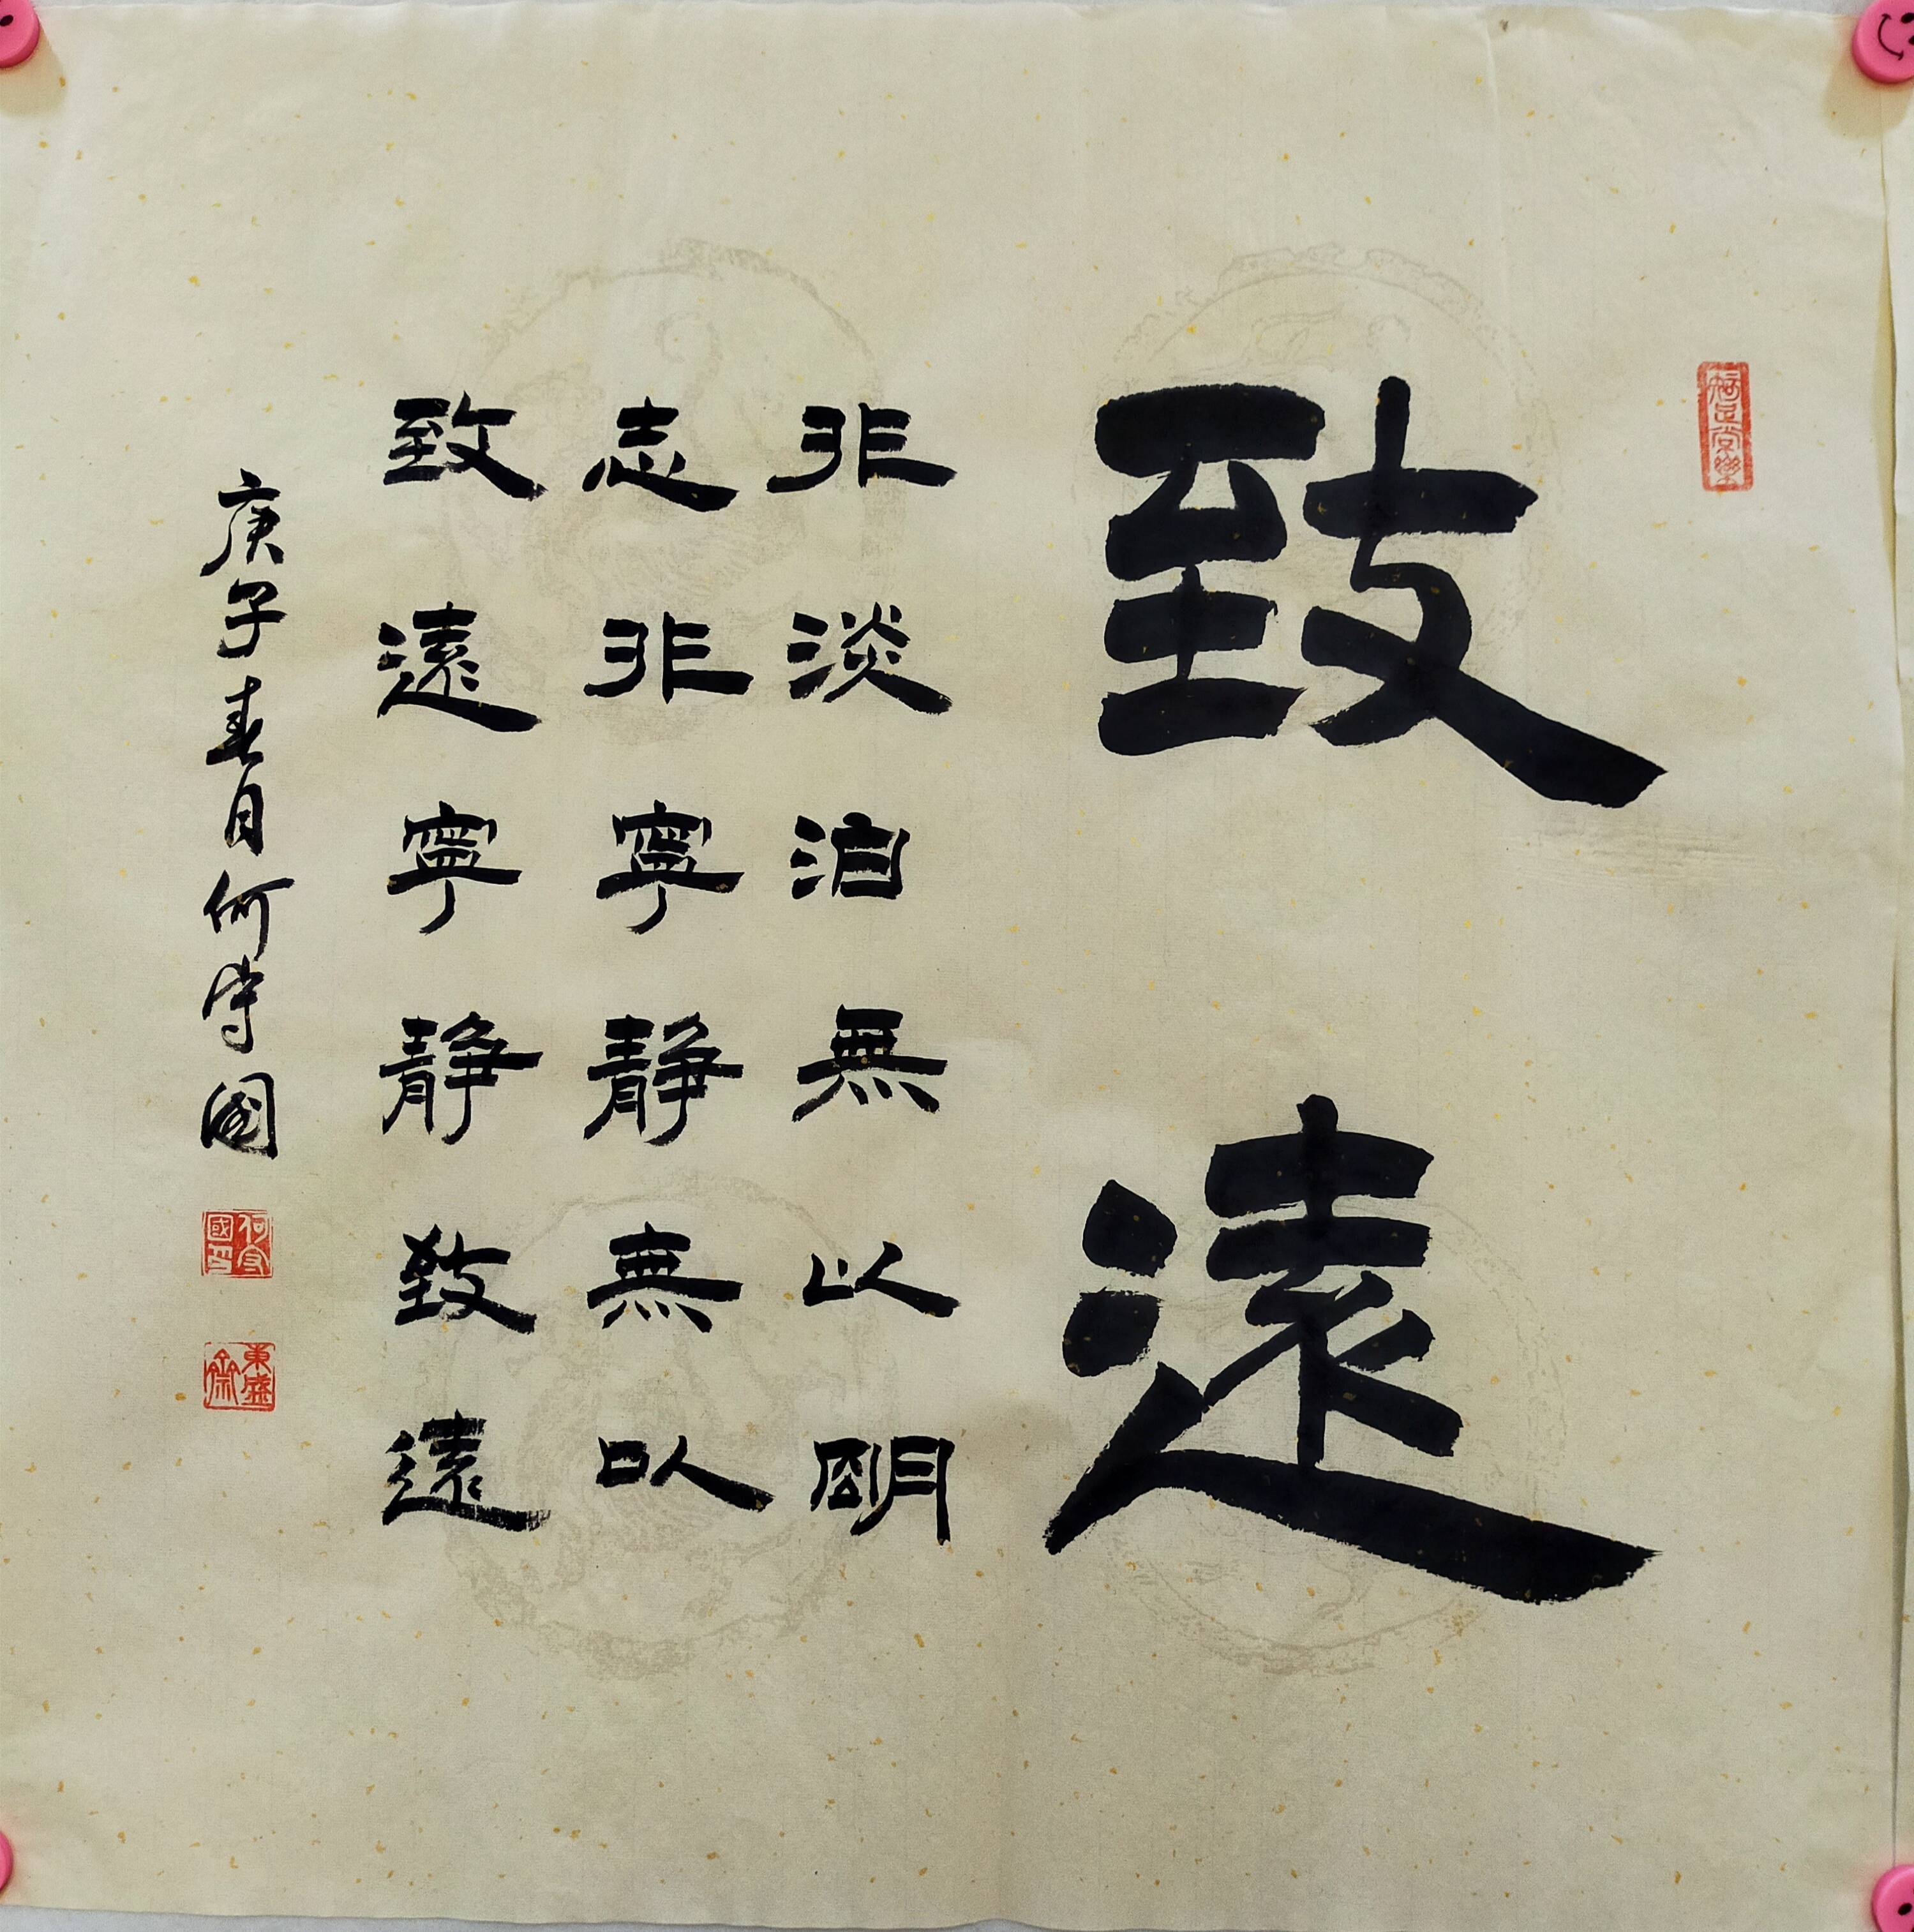 知足常樂
致遠
非淡泊無以明
志非寧靜無以
致遠寧靜致遠
庚子春月何守國
何守國印
東盛齋